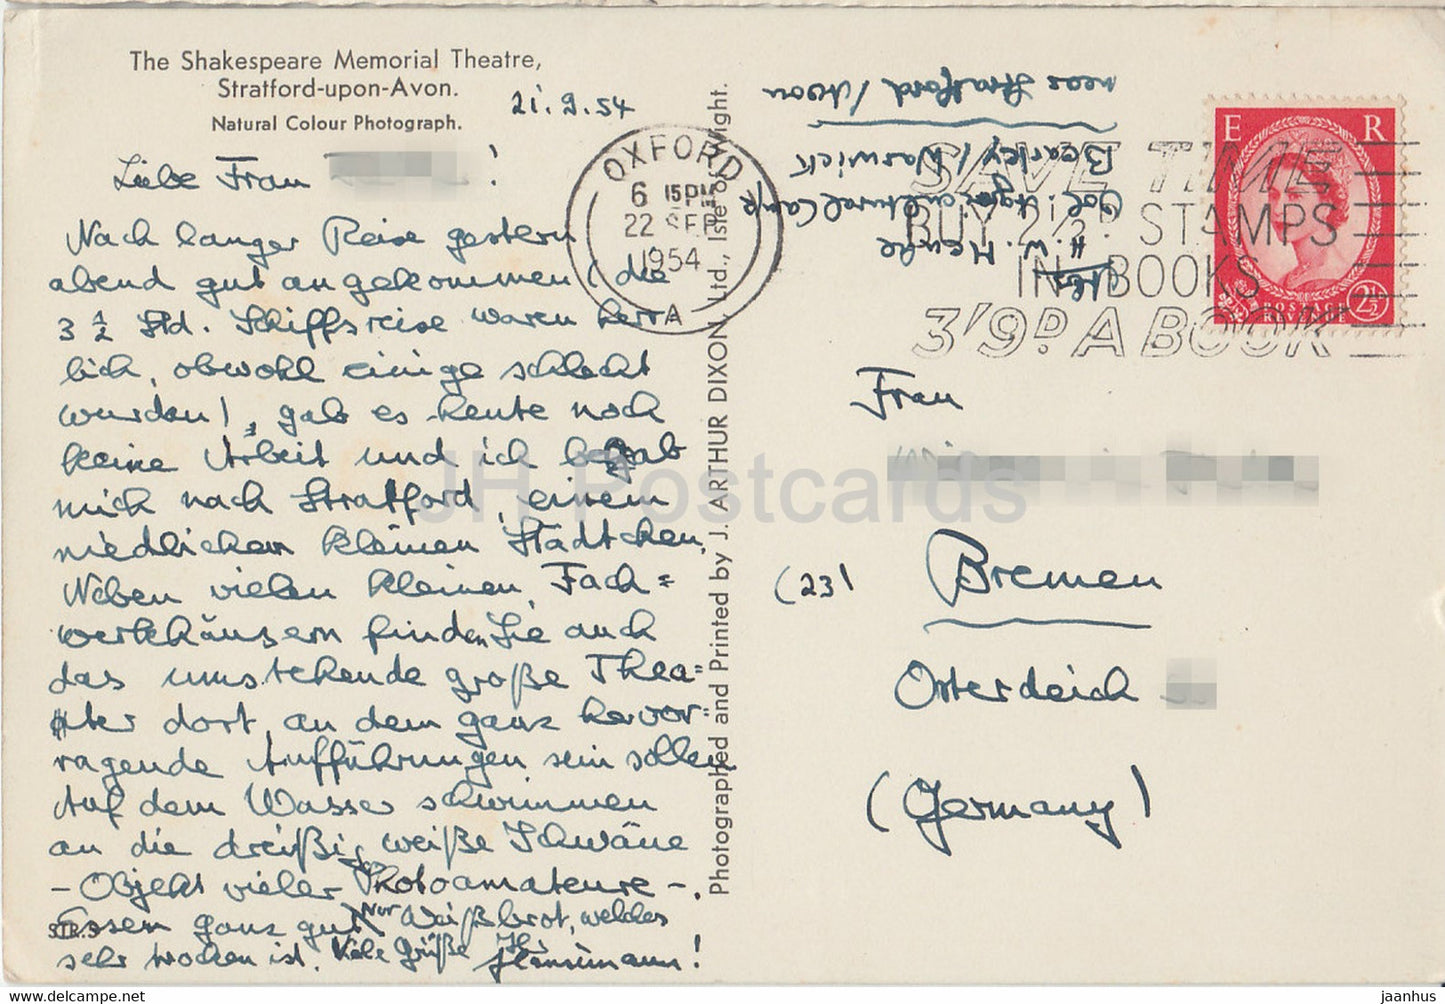 The Shakespeare Memorial Theatre,
Stratford-upon-Avon.
Natural Colour Photograph.
21.9.54
Liebe Frau !
Nach langer Reise gestern
abend gut angekommen (die
3 1/2 Std. Schiffsreise waren herr
lich, obwohl einige schlecht
wurden), gab es heute noch
keine Arbeit und ich begab
mich nach Stratford, einem
niedlichen kleinen Städtchen.
Neben vielen kleinen Fach=
werkhäusern finden Sie auch
das umstehende große Thea=
ter dort, an dem ganz hervor=
ragende Aufführungen sein sollen
Auf dem Wasser schwimmen
an die dreißig weiße Schwäne
- Objekt vieler Photoamateure -.
Essen ganz gut. Nur Weißbrot, welches
sehr trocken ist. Viele Grüße Ihr
!
Photographed and Printed by J. ARTHUR DIXON, Ltd., Isle of Wight.
OXFORD
6 15 PM
22 SEP
1954
A
H.W.
Agricultural Camp
Bearley / Warwick
near Stratford / Avon
SAVE TIME
BUY 2½D STAMPS
IN BOOKS
3/9D A BOOK
E R
POSTAGE
REVENUE
2½
Frau
(23)
Bremen
Osterdeich
(Germany)
JH Postcards
jaanhus